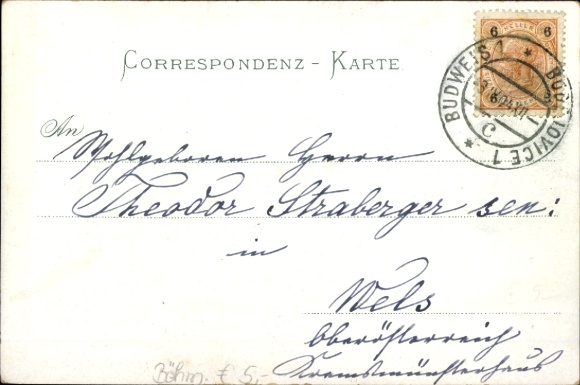 CORRESPONDENZ - KARTE.
6 6
BUDWEIS 1 * BUDĚJOVICE 1 *
C
An
Wohlgeboren Herrn
Theodor Straberger sen:
in
Wels
Oberösterreich
Kremsmünsterhaus
Böhm. € 5,-